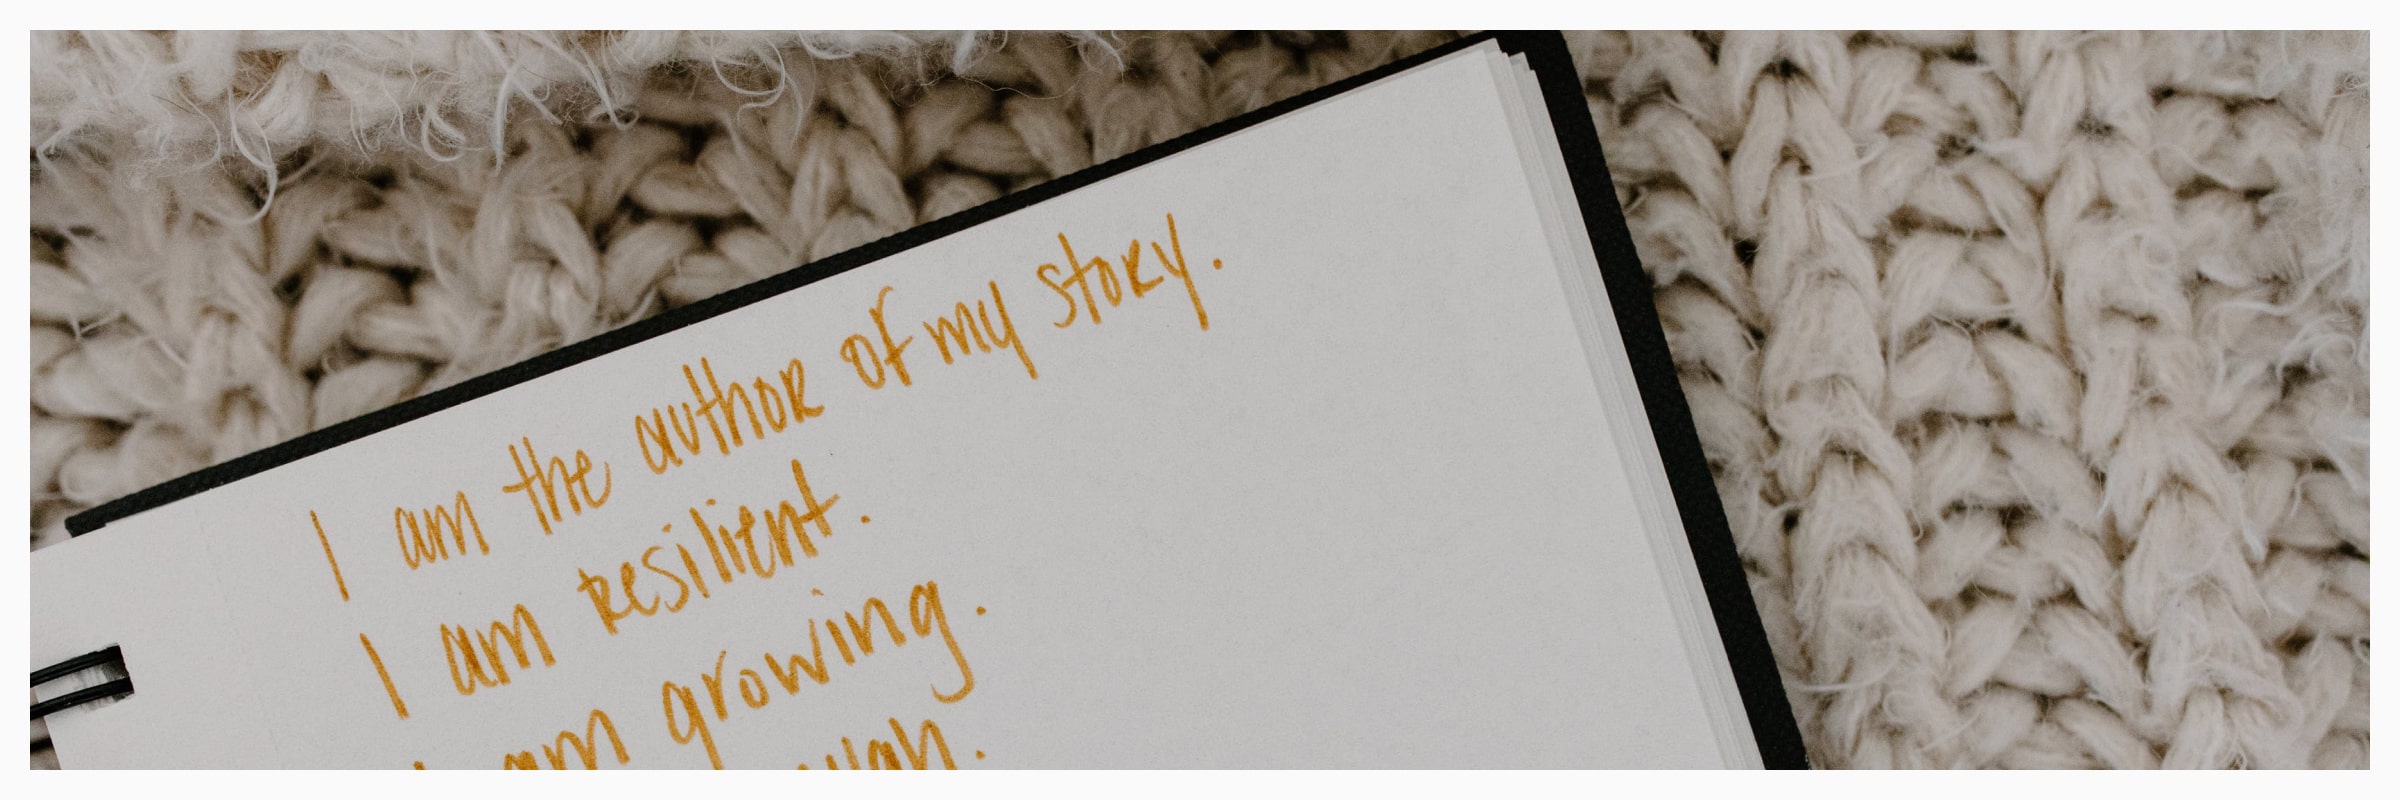 I am the author of my story.
I am resilient.
I am growing.